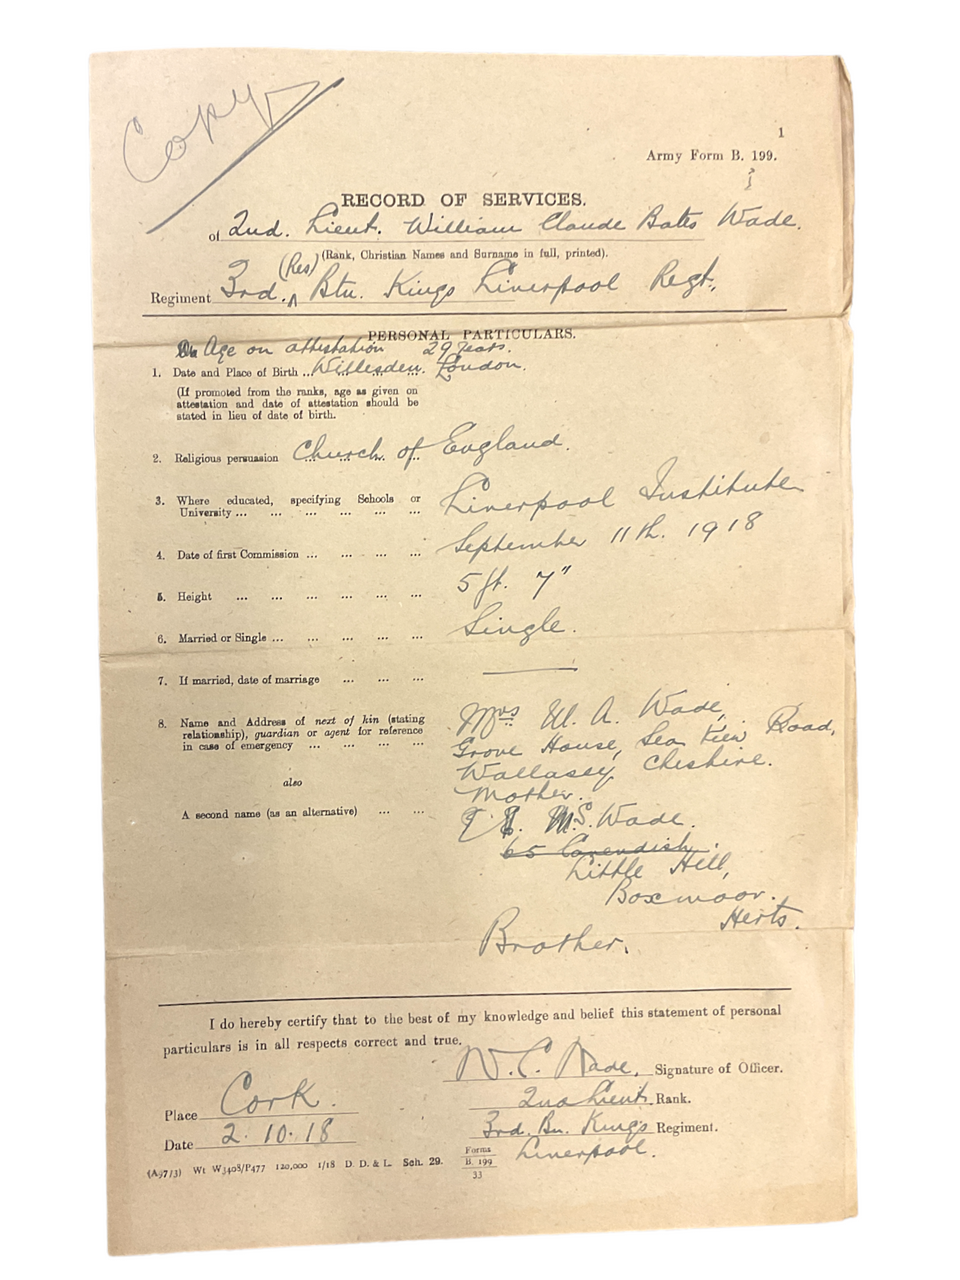 Copy
1
Army Form B. 199.
RECORD OF SERVICES.
of 2nd. Lieut. William Claude Bates Wade.
(Rank, Christian Names and Surname in full, printed).
(Res)
Regiment 3rd. ^ Btn. Kings Liverpool Regt.,
PERSONAL PARTICULARS.
Age on attestation 29 years.
1. Date and Place of Birth ... Willesden. London.
(If promoted from the ranks, age as given on
attestation and date of attestation should be
stated in lieu of date of birth.
2. Religious persuasion Church of England.
3. Where educated, specifying Schools or
University ... ... ... ... ... ... Liverpool Institute
4. Date of first Commission ... ... ... ... September 11th. 1918
5. Height ... ... ... ... ... ... 5 ft. 7"
6. Married or Single ... ... ... ... ... Single.
7. If married, date of marriage ... ... ...
8. Name and Address of next of kin (stating
relationship), guardian or agent for reference
in case of emergency ... ... ... ...
Mrs W. A. Wade,
Grove House, Sea View Road,
Wallasey, Cheshire.
Mother.
also
A second name (as an alternative) ... ...
M.S. Wade.
65 Cavendish
Little Hill,
Boxmoor.
Herts.
Brother.
I do hereby certify that to the best of my knowledge and belief this statement of personal
particulars is in all respects correct and true.
W. C. Wade. Signature of Officer.
Place Cork.
2nd Lieut. Rank.
Date 2.10.18
3rd. Bn. Kings Regiment.
Liverpool.
(A97/3) Wt W3408/P477 120,000 1/18 D. D. & L. Sch. 29. Forms
B. 199
33